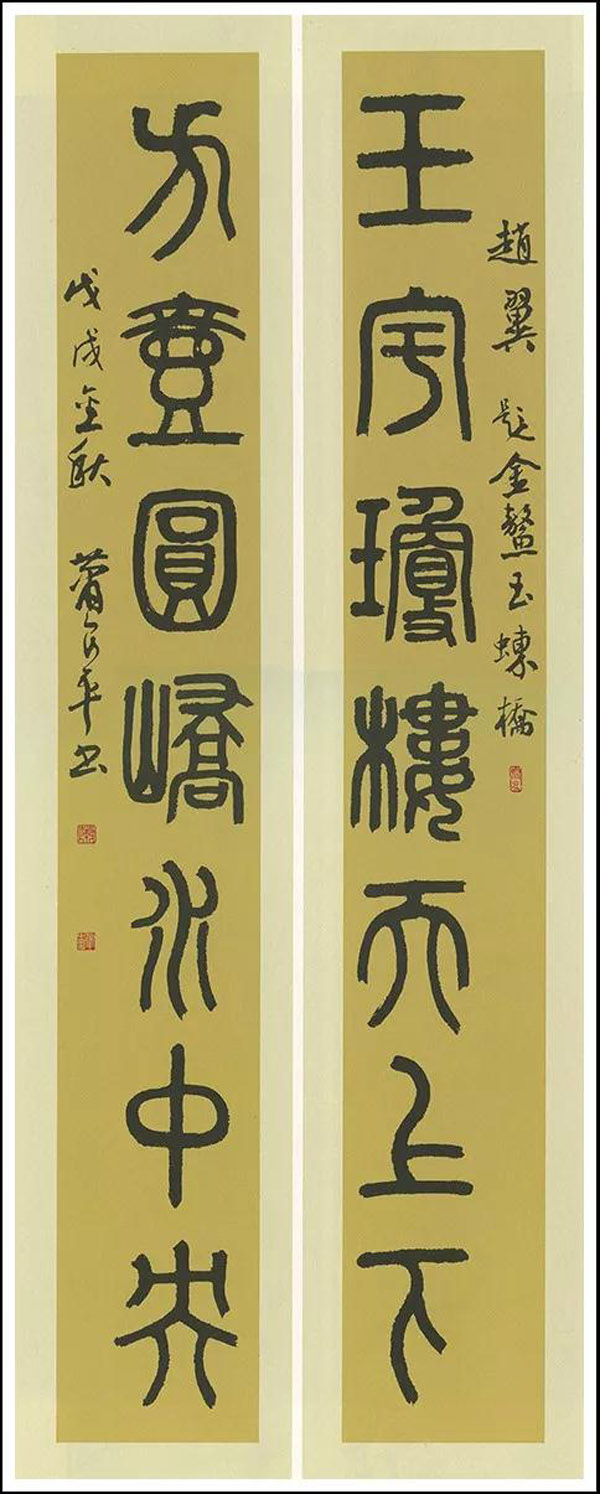 趙翼 題金鰲玉蝀橋
玉宇瓊樓天上下
方壺圓嶠水中央
戊戌金秋 蕭平書